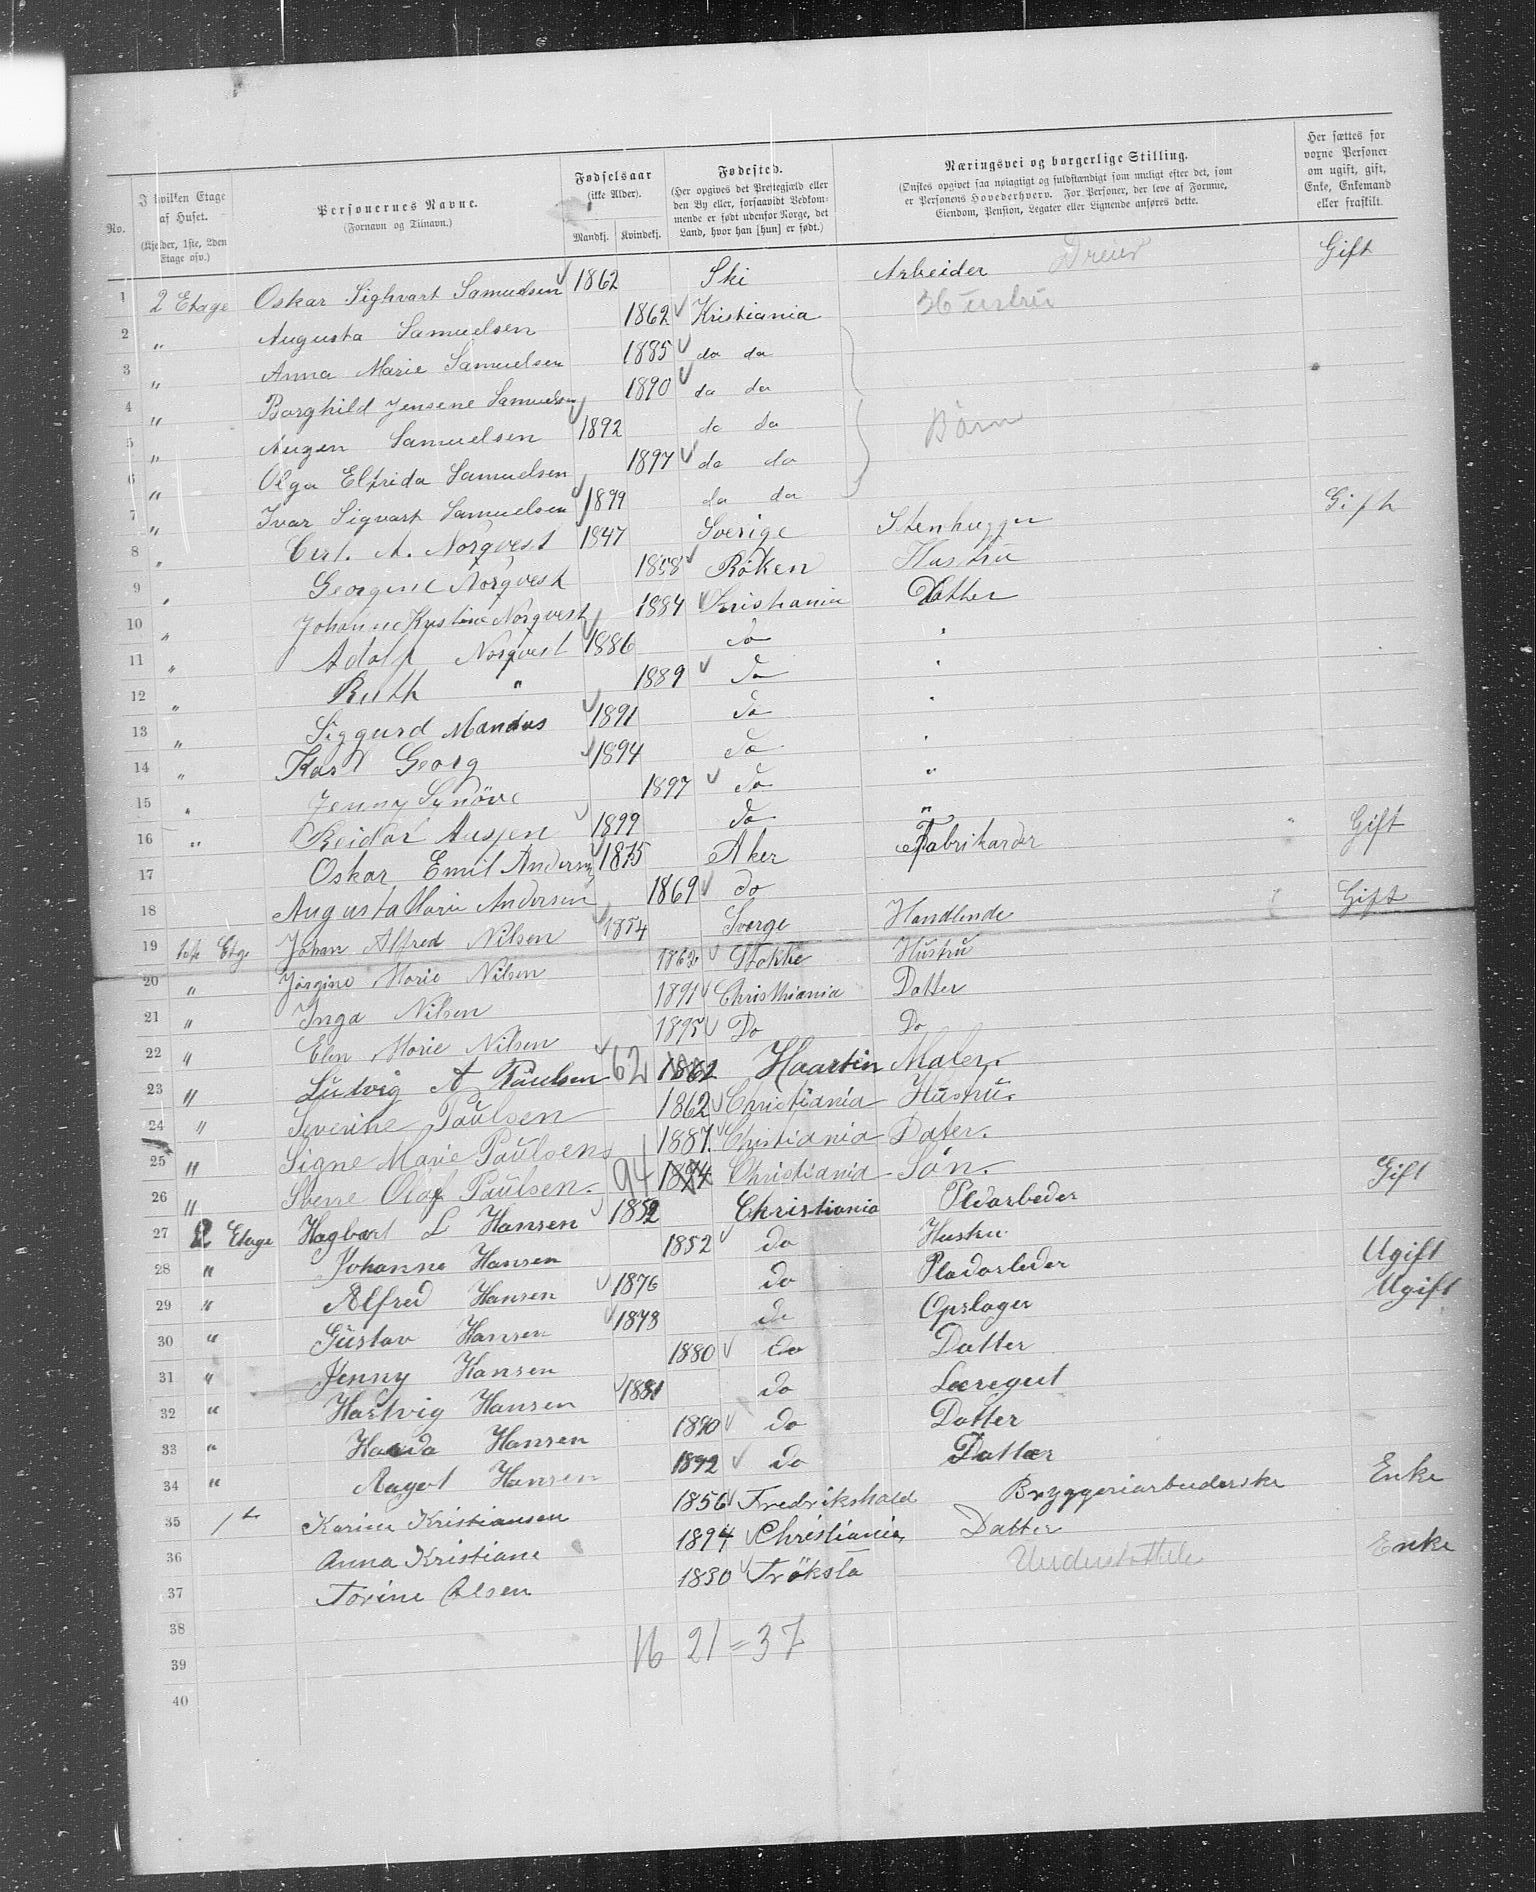 No.
I hvilken Etage af Huset. (Kjelder, 1ste, 2den Etage osv.)
Personernes Navne. (Fornavn og Tilnavn.)
Fødselsaar (ikke Alder). Mandkj. Kvindekj.
Fødested. (Her opgives det Prestegjæld eller den By eller, forsaavidt Vedkommende er født udenfor Norge, det Land, hvor han [hun] er født.)
Næringsvei og borgerlige Stilling. (Ønskes opgivet saa nøiagtigt og fuldstændigt som muligt efter det, som er Personens Hovederhverv. For Personer, der leve af Formue, Eiendom, Pension, Legater eller Lignende anføres dette.
Her sættes for vorne Personer om ugift, gift, Enke, Enkemand eller fraskilt.
1 2 Etage Oskar Sighvart Samuelsen 1862 Ski Arbeider Dreier Gift
2 " Augusta Samuelsen 1862 Kristiania Hustru
3 " Anna Marie Samuelsen 1885 do do
4 " Borghild Jensene Samuelsen 1890 do do
5 " Augen Samuelsen 1892 do do Børn
6 " Olga Elfrida Samuelsen 1897 do do
7 " Ivar Sigvart Samuelsen 1899 do do
8 " A. Norqvest 1847 Sverige Stenhugger Gift
9 " Georgine Norqvest 1858 Røken Hustru
10 " Johanne Kristine Norqvest 1884 Kristiania Datter
11 " Adolf Norqvest 1886 do "
12 " Ruth " 1889 do "
13 " Siggurd Mandus 1891 do "
14 " Karl Georg 1894 do "
15 " Jenny Synöve 1897 do "
16 " Reidar 1899 do "
17 Oskar Emil Andersen 1875 Aker Fabrikarder Gift
18 Augusta Marie Andersen 1869 do
19 1ste Etge Johan Alfred Nilsen 1854 Sverge Handlende Gift
20 " Jørgine Marie Nilsen 1862 Stokke Hustru
21 " Inga Nilsen 1891 Christhiania Datter
22 " Elen Marie Nilsen 1895 Do Do
23 " Ludvig A Paulsen 62 1862 Haartin Maler.
24 " Severine Paulsen 1862 Christiania Hustru.
25 " Signe Marie Paulsen 1887. Christiania Dater.
26 " Sverre Olaf Paulsen. 94 1894 Christiania Sön.
27 2 Etage Hagbart L Hansen 1852 Christiania Pladarbeder Gift
28 " Johanne Hansen 1852 do Hustru
29 " Alfred Hansen 1876 do Pladarbeder Ugift
30 " Gustav Hansen 1878 do Opslager Ugift
31 " Jenny Hansen 1880 do Datter
32 " Hartvig Hansen 1881 do Læregut
33 " Hansen 1890 do Datter
34 " Aagot Hansen 1892 do Datter
35 1ste Karine Kristiansen 1856 Fredrikshald Bryggeriarbeiderske Enke
36 Anna Kristiane 1894 Christiania Datter
37 Torine Olsen 1830 Trøksta Understøttele Enke
38
39 16 21 = 37
40